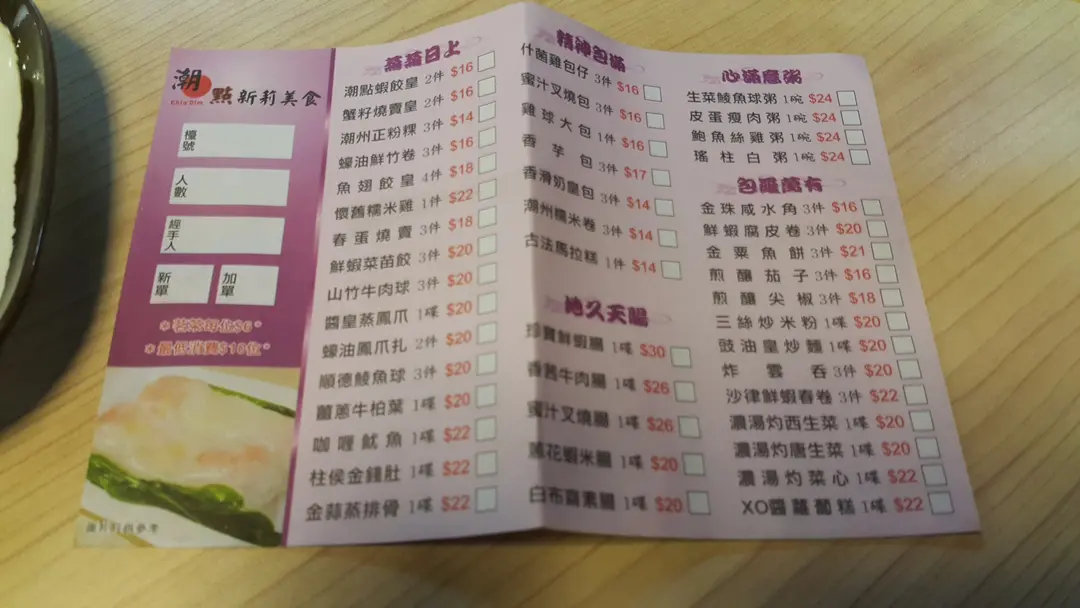 潮點 新莉美食
Chiu Dim
檯號
人數
經手人
新單
加單
*茗茶每位$6*
*最低消費$18位*
圖片只供參考
蒸蒸日上
潮點蝦餃皇 2件 $16
蟹籽燒賣皇 2件 $16
潮州正粉粿 3件 $14
蠔油鮮竹卷 3件 $16
魚翅餃皇 4件 $18
懷舊糯米雞 1件 $22
春蛋燒賣 3件 $18
鮮蝦菜苗餃 3件 $20
山竹牛肉球 3件 $20
醬皇蒸鳳爪 1碟 $20
蠔油鳳爪扎 2件 $20
順德鯪魚球 3件 $20
薑蔥牛柏葉 1碟 $20
咖喱魷魚 1碟 $22
柱侯金錢肚 1碟 $22
金蒜蒸排骨 1碟 $22
精神包滿
什菌雞包仔 3件 $16
蜜汁叉燒包 3件 $16
雞球大包 1件 $16
香芋包 3件 $17
香滑奶皇包 3件 $14
潮州糯米卷 3件 $14
古法馬拉糕 1件 $14
地久天腸
珍寶鮮蝦腸 1碟 $30
香茜牛肉腸 1碟 $26
蜜汁叉燒腸 1碟 $26
蔥花蝦米腸 1碟 $20
白布齋素腸 1碟 $20
心滿意粥
生菜鯪魚球粥 1碗 $24
皮蛋瘦肉粥 1碗 $24
鮑魚絲雞粥 1碗 $24
瑤柱白粥 1碗 $24
包羅萬有
金珠咸水角 3件 $16
鮮蝦腐皮卷 3件 $20
金粟魚餅 3件 $21
煎釀茄子 3件 $16
煎釀尖椒 3件 $18
三絲炒米粉 1碟 $20
豉油皇炒麵 1碟 $20
炸雲吞 3件 $20
沙律鮮蝦春卷 3件 $22
濃湯灼西生菜 1碟 $20
濃湯灼唐生菜 1碟 $20
濃湯灼菜心 1碟 $22
XO醬蘿蔔糕 1碟 $22